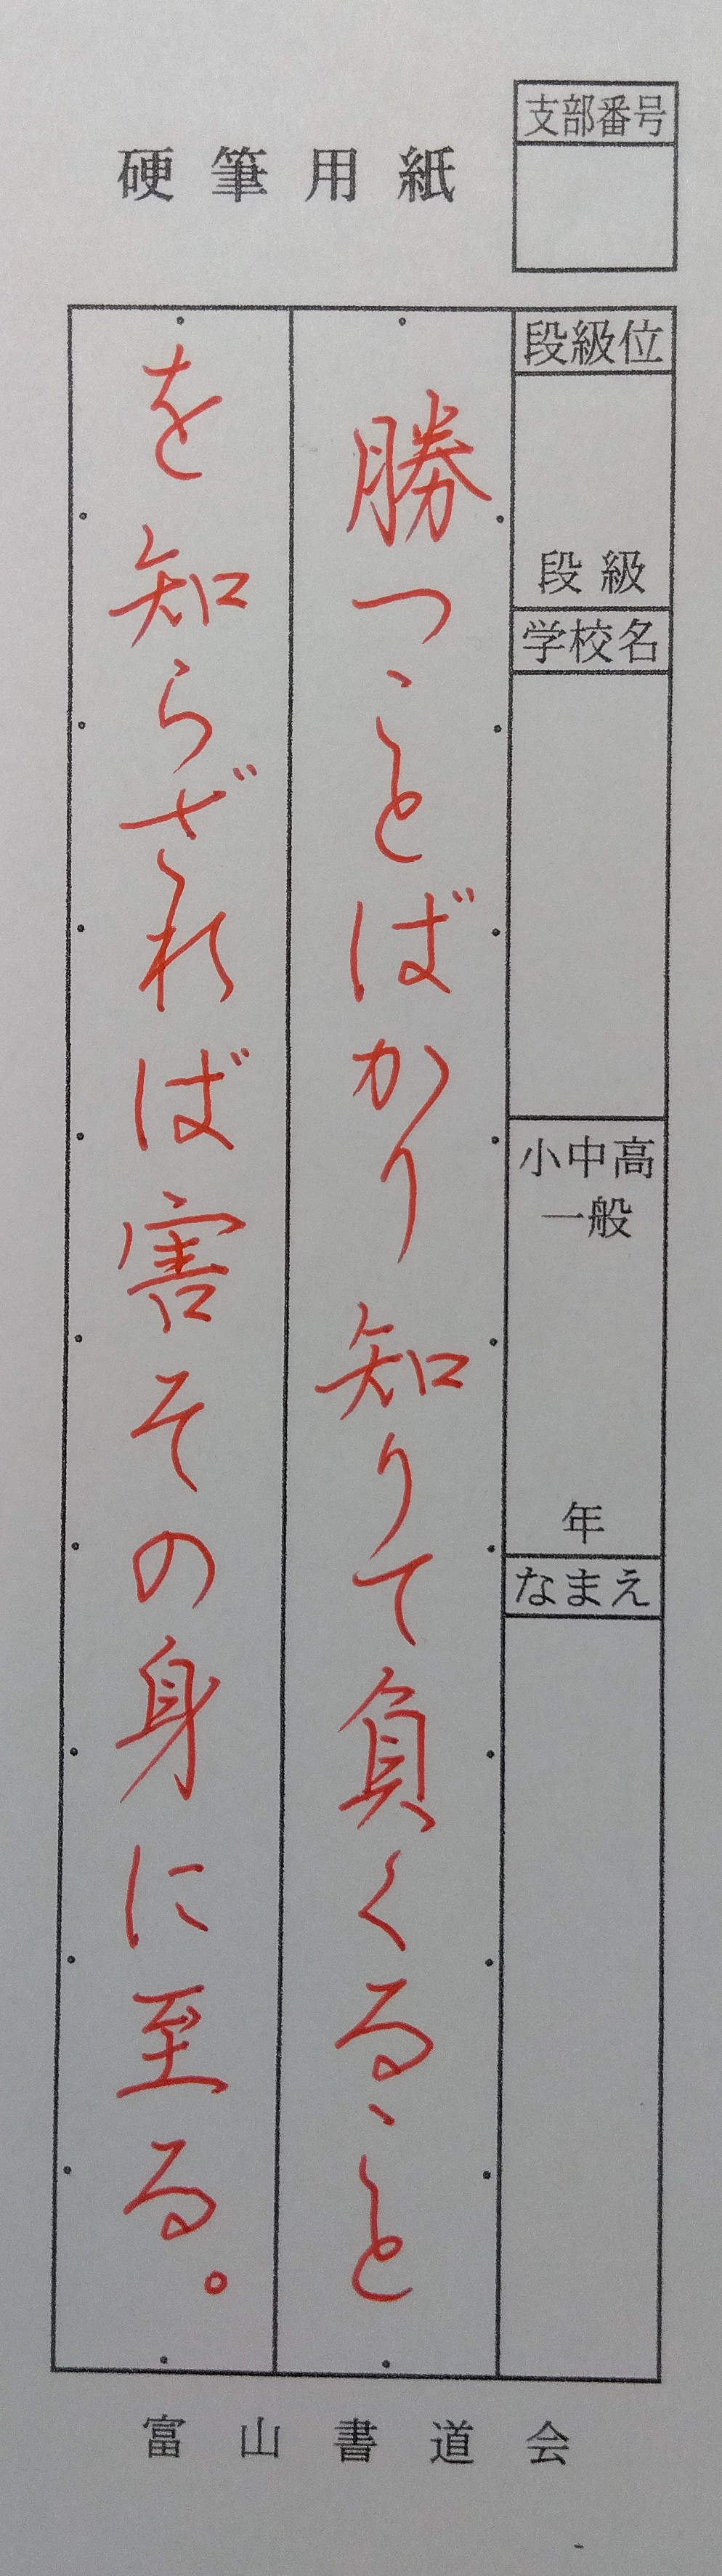 硬筆用紙
支部番号
段級位
段級
学校名
小中高
一般
年
なまえ
勝つことばかり知りて負くること
を知らざれば害その身に至る。
富山書道会